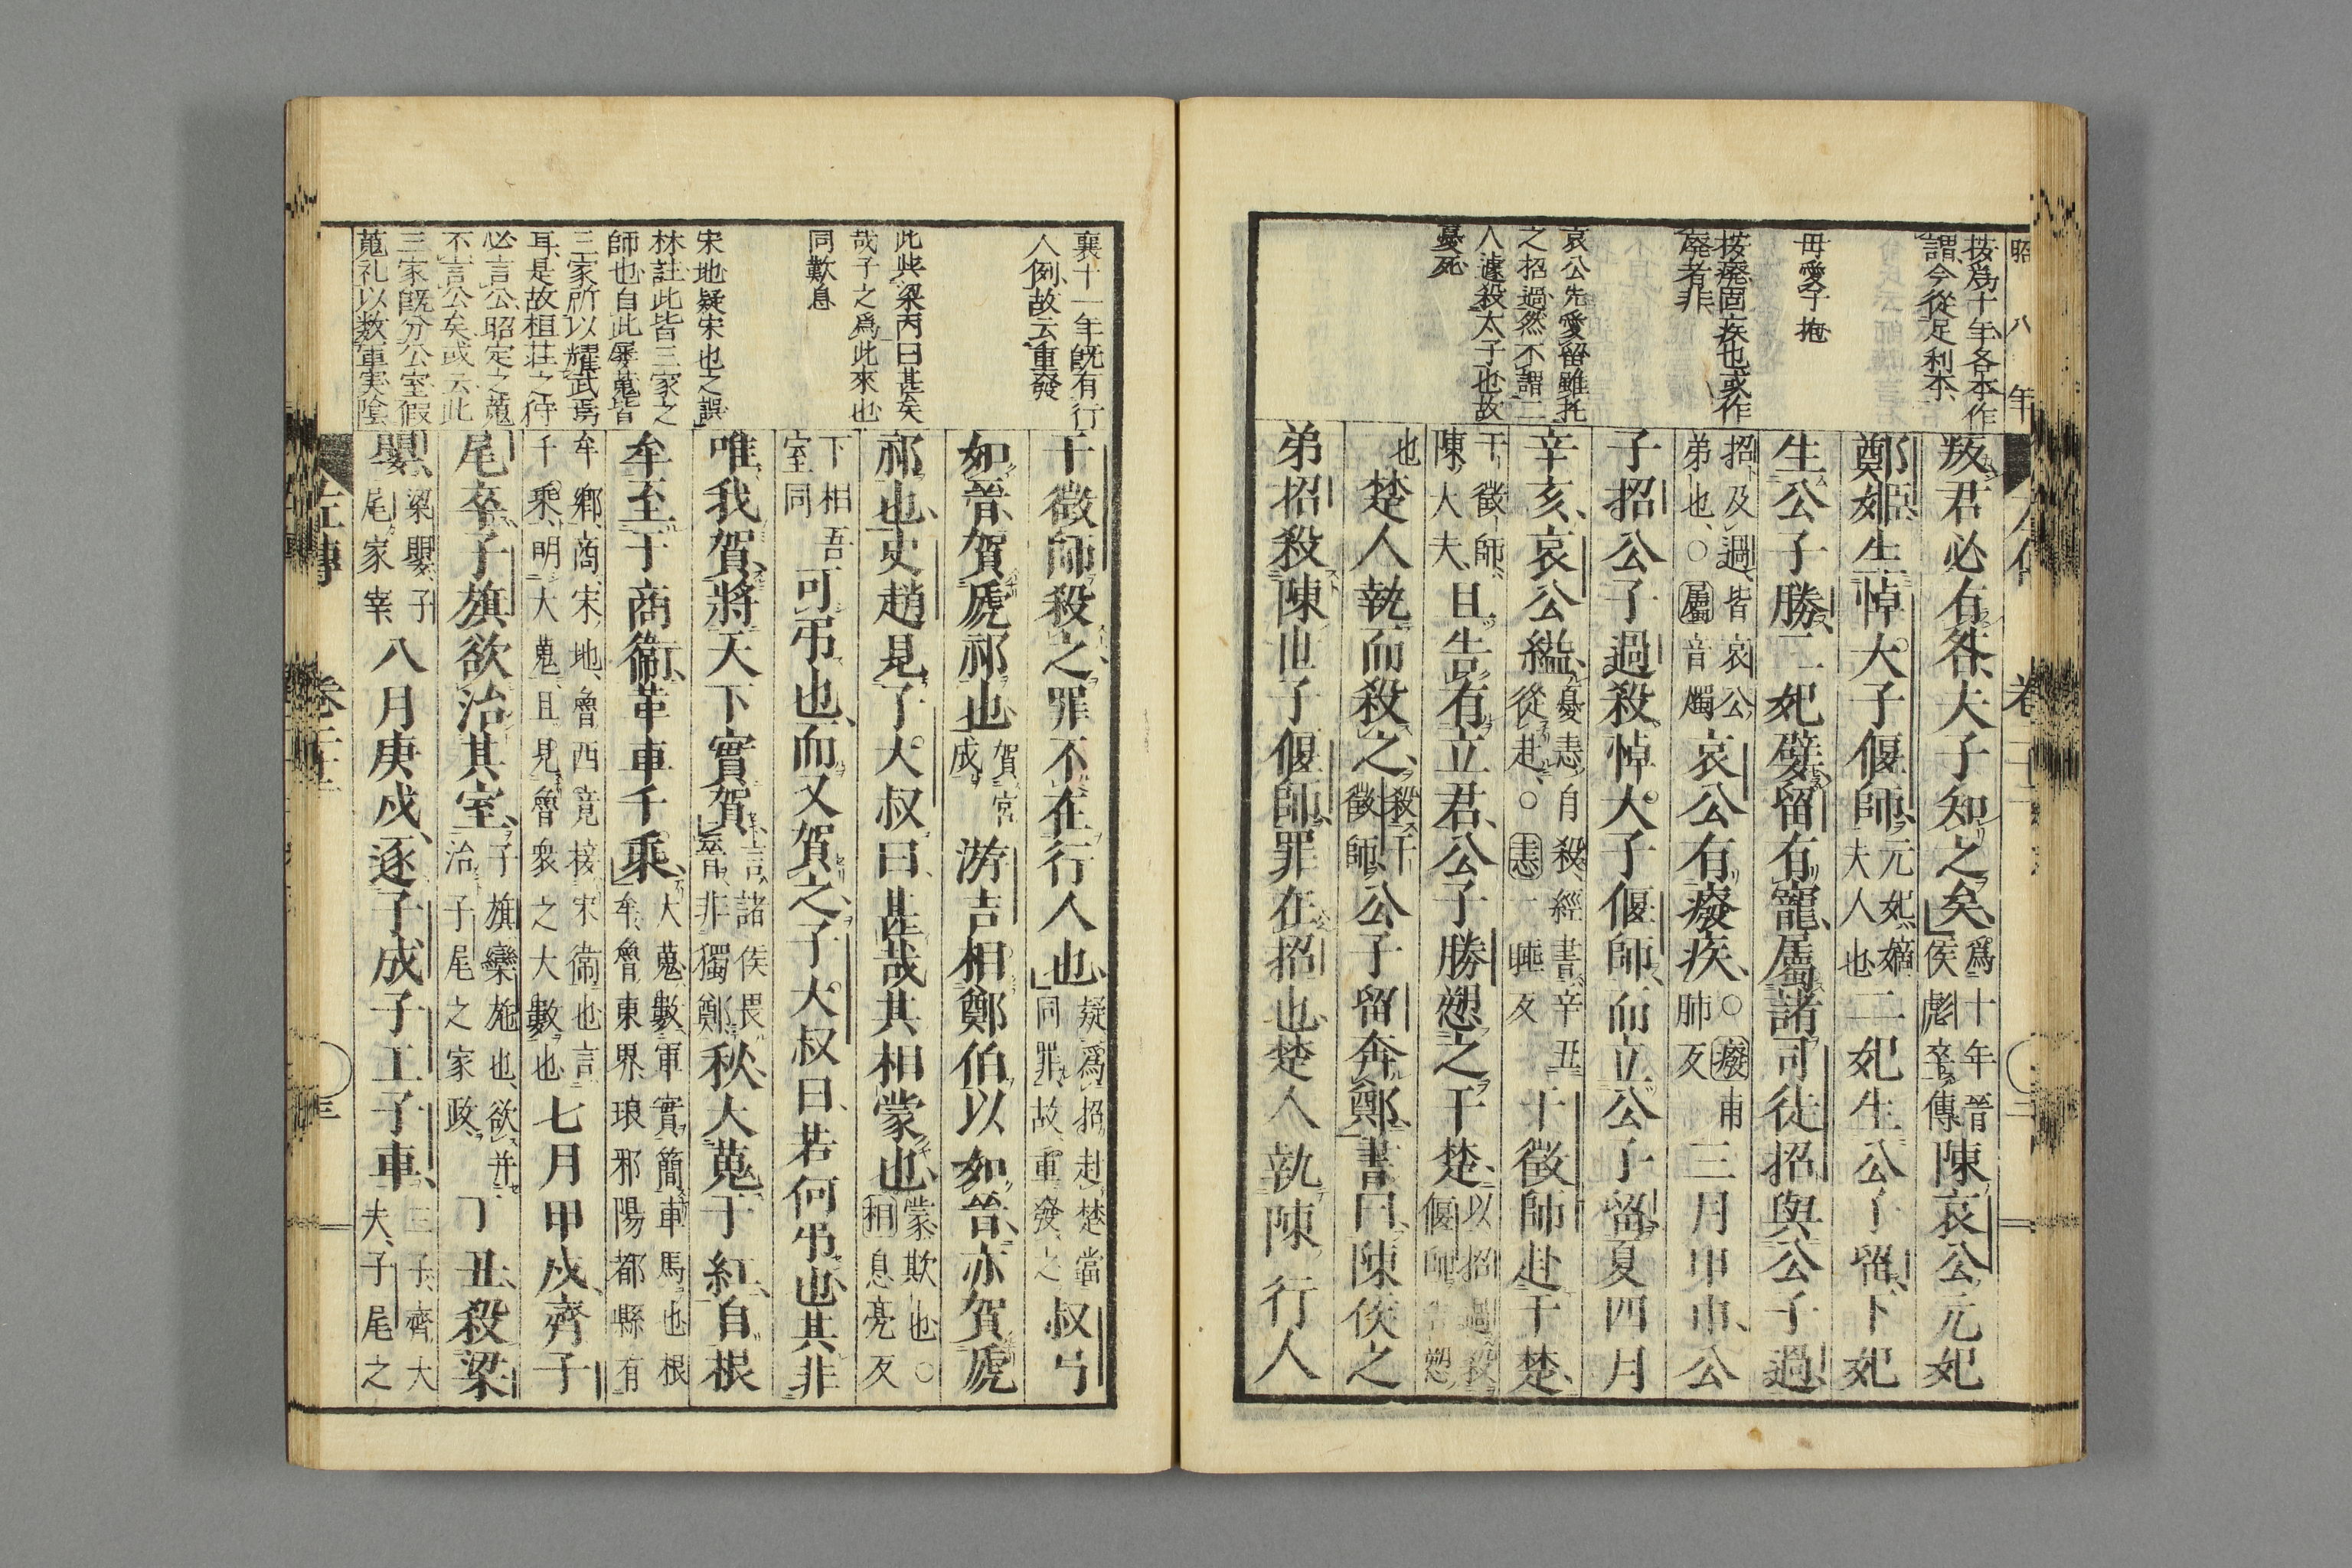 昭八年
按爲十年各本作
謂今從足利本
母愛子抱
按廢固疾也或作
廢者非
哀公先愛留雖托
之招過然不謂二
人遽殺太子也故
憂死
叛君必有咎夫子知之矣爲十年晉侯彪卒傳陳哀公元妃
鄭姬生悼大子偃師元妃嫡夫人也二妃生公子留下妃
生公子勝二妃嬖留有寵屬諸司徒招與公子過
招及過皆哀公弟也○屬音燭哀公有癈疾○癈甫肺反三月甲申公
子招公子過殺悼大子偃師而立公子留夏四月
辛亥哀公縊憂恚自殺經書辛丑從赴○恚一睡反干徵師赴于楚
干徵師陳大夫且告有立君公子勝愬之于楚以招過殺偃師告愬
也楚人執而殺之殺干徵師公子留奔鄭書曰陳侯之
弟招殺陳世子偃師罪在招也楚人執陳行人
襄十一年既有行
人例故云重發
此與梁丙曰甚矣
哉子之爲此來也
同歎息
宋地疑宋也之誤
林註此皆三家之
師也自此屢蒐皆
三家所以耀武焉
耳是故桓莊之狩
必言公昭定之蒐
不言公矣或云此
三家既分公室假
蒐礼以数軍実隂
干徵師殺之罪不在行人也疑爲招赴楚當同罪故重發之叔弓
如晉賀虒祁也賀宮成游吉相鄭伯以如晉亦賀虒
祁也史趙見子大叔曰甚哉其相蒙也蒙欺也○相息亮反
下相吾室同可弔也而又賀之子大叔曰若何弔也其非
唯我賀將天下實賀言諸侯畏晉非獨鄭秋大蒐于紅自根
牟至于商衞革車千乘大蒐數軍實簡車馬也根牟魯東界琅邪陽都縣有
牟鄉商宋地魯西竟接宋衞也言千乘明大蒐且見魯衆之大數也七月甲戌齊子
尾卒子旗欲治其室子旗欒施也欲并治子尾之家政丁丑殺梁
嬰梁嬰子尾家宰八月庚戌逐子成子工子車三子齊大夫子尾之
左傳